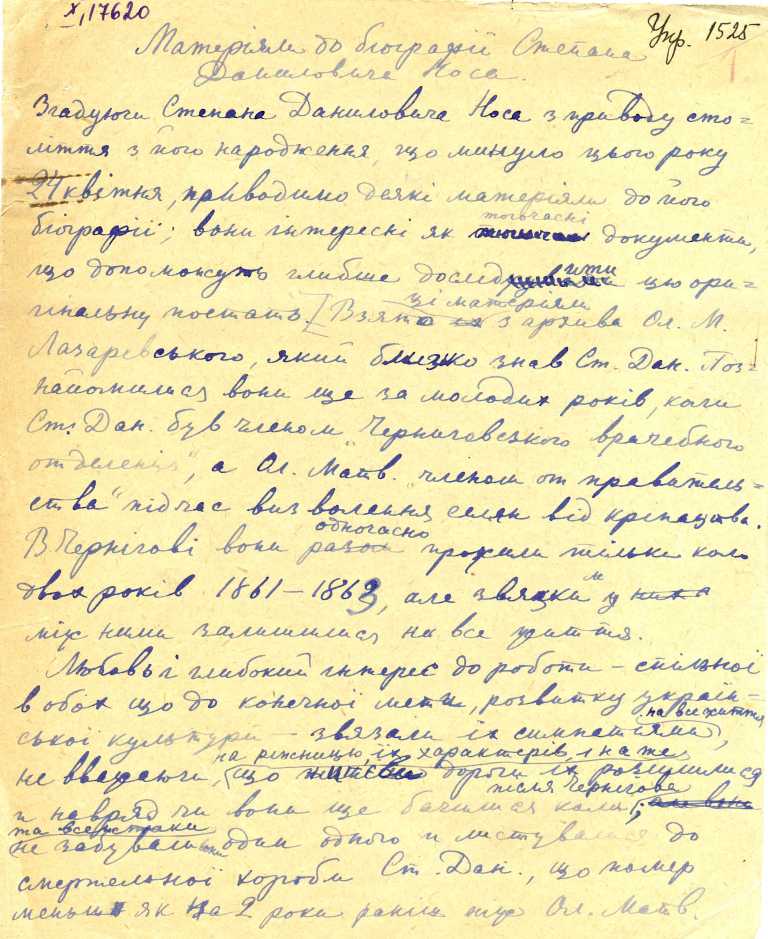 X, 17620
Укр. 1525
1
Матеріяли до біографії Степана
Даниловича Носа.
Згадуючи Степана Даниловича Носа з приводу сто=
ліття з його народження, що минуло цього року
24 квітня, приводимо деякі матеріяли до його
тогочасні
біографії; вони інтересні як документи,
ити
що допоможуть глибше дослід цю ори=
ці матеріяли
гінальну постать [Взято їх з архива Ол. М.
Лазаревського, який близько знав Ст. Дан. Поз=
найомилися вони ще за молодих років, коли
Ст. Дан. був членом "Черниговського врачебного
отделенія", а Ол. Матв. "членом от правитель=
ства" під час визволення селян від кріпацтва.
одночасно
В Чернігові вони разом прожили тільки коло
двох років 1861–1863, але звязки у них
між ними залишилися на все життя.
Любовь і глибокий інтерес до роботи – спільної
в обох що до конечної мети, розвитку україн=
на все життя
ської культури – звязали їх симпатіями,
на ріжницю їх характерів, і на те
не вважаючи, що життєві дороги їх розійшлися
після Чернігова
и навряд чи вони ще бачилися коли; але вони
та все ж таки
не забували вони один одного и листувалися до
смертельної хороби Ст. Дан., що помер
меньш як на 2 роки раніш ніж Ол. Матв.